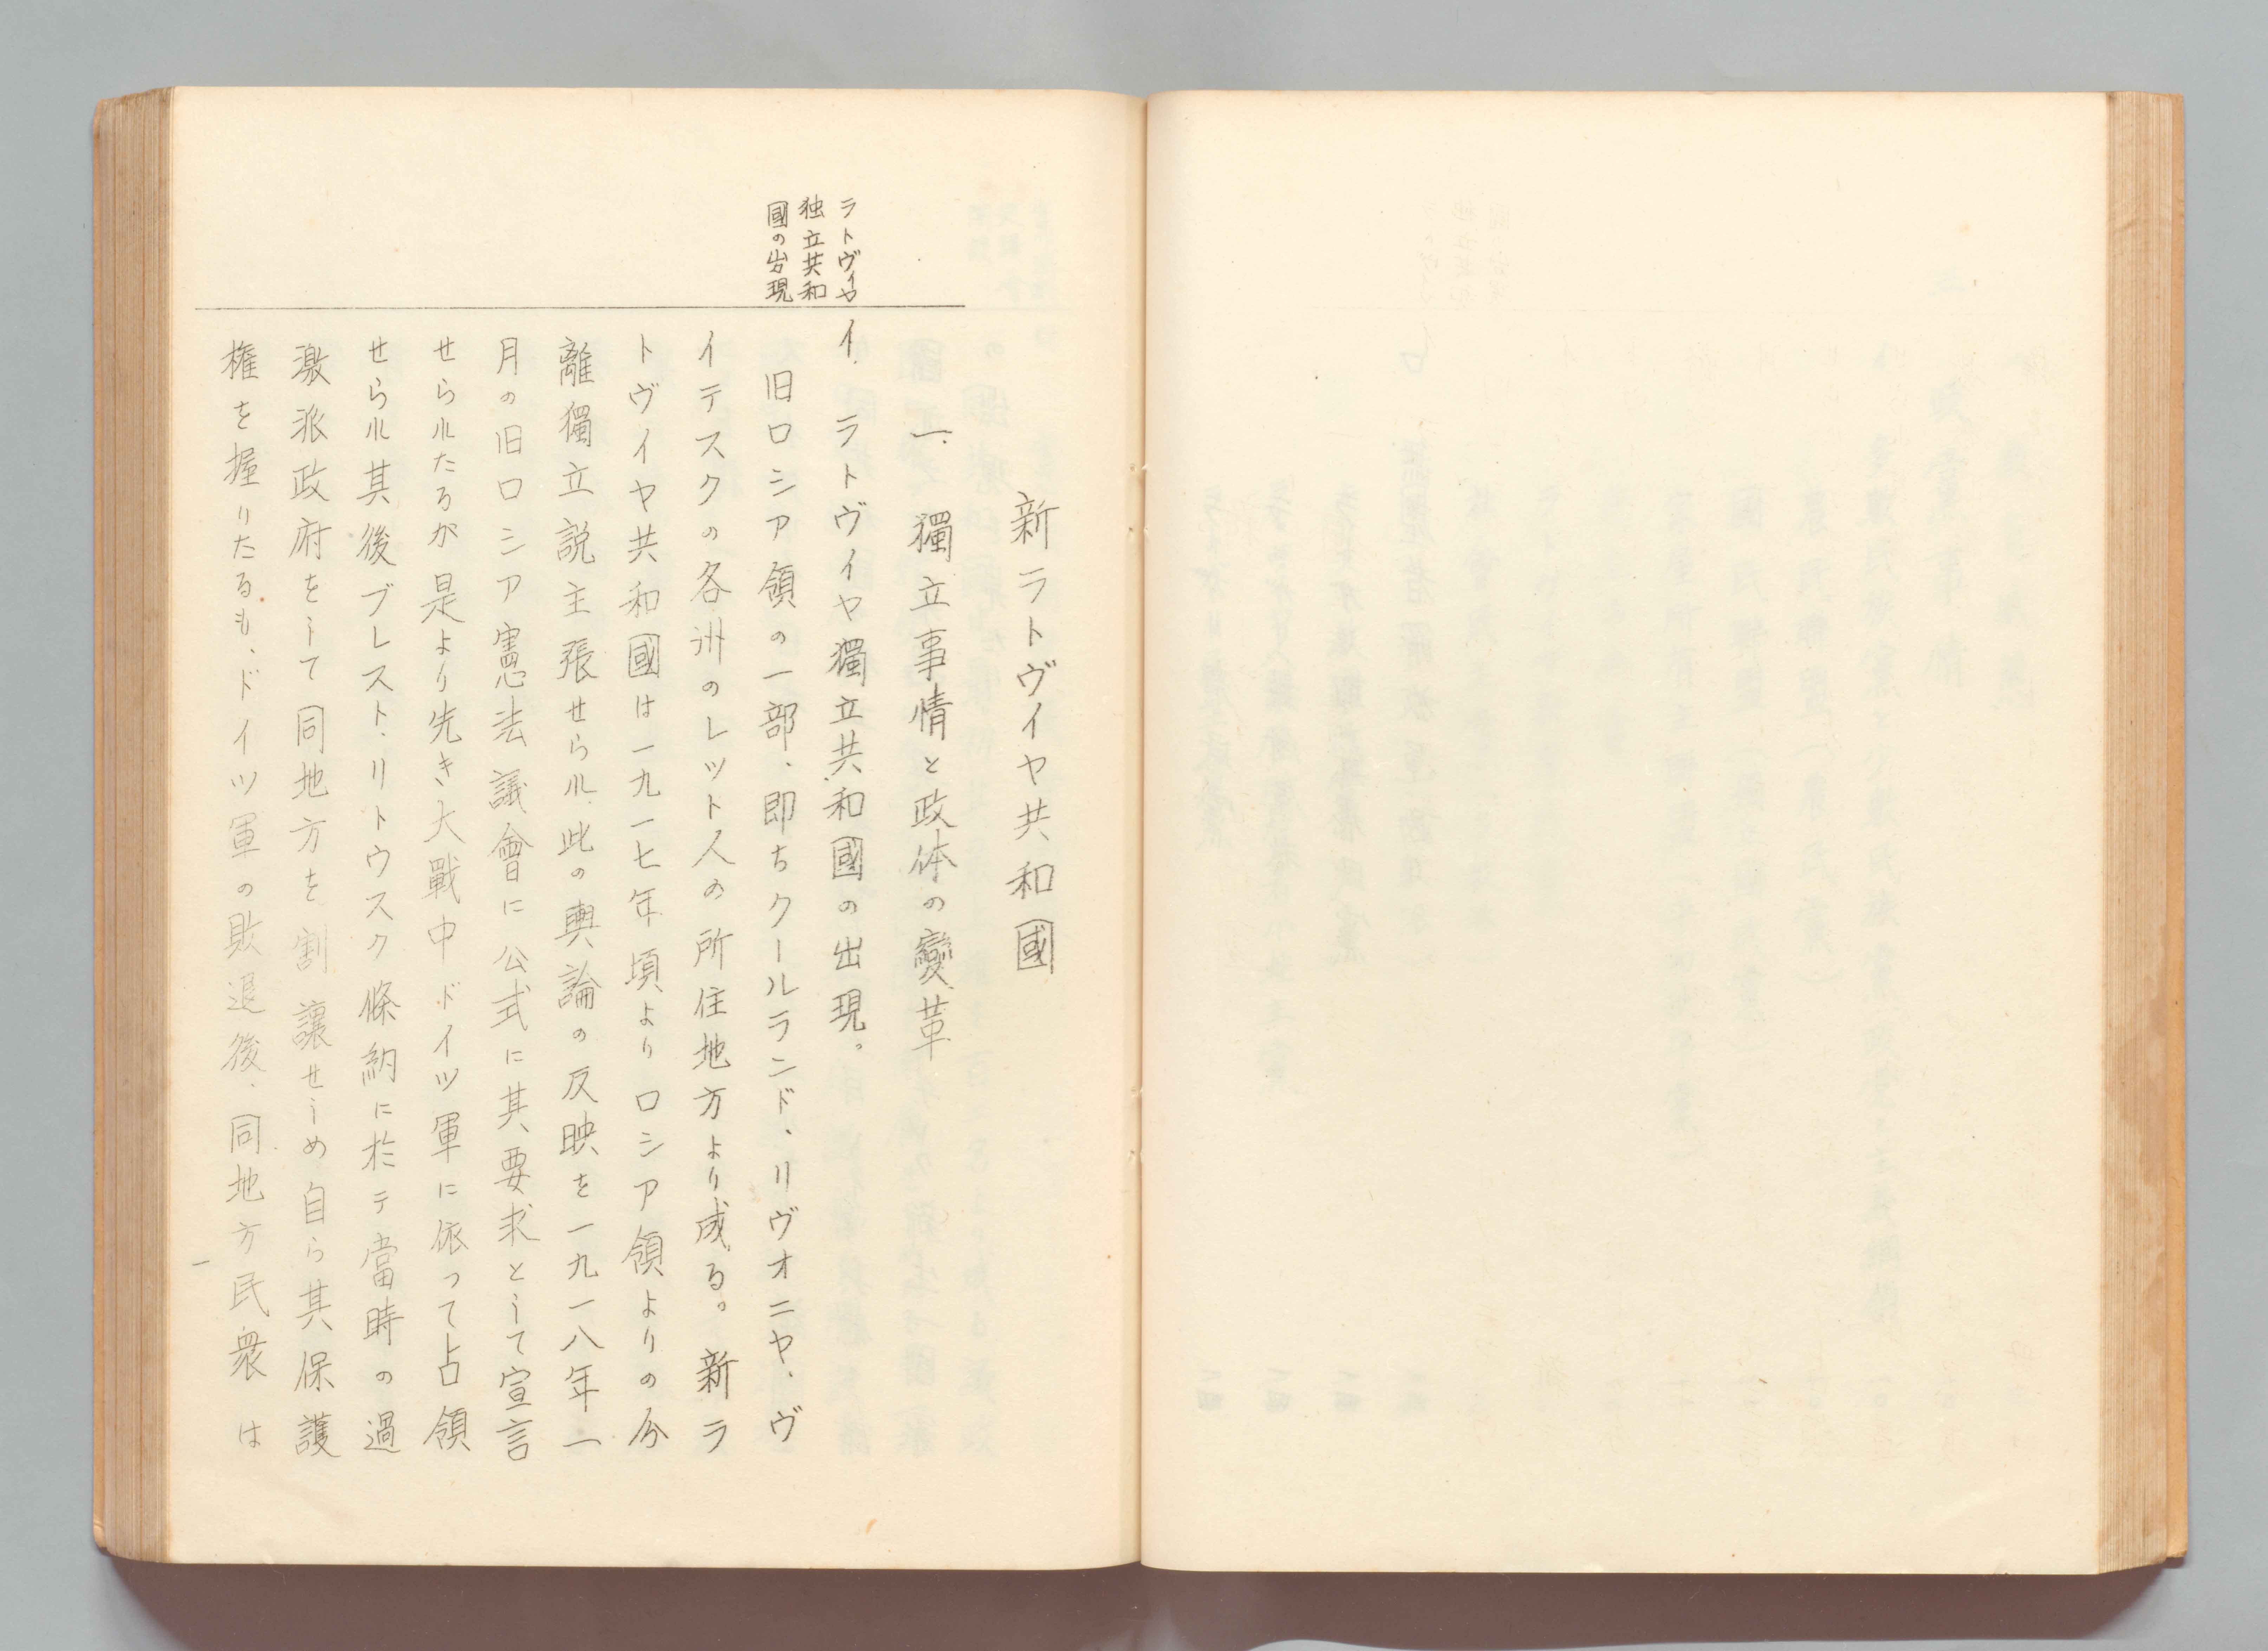 新ラトヴイヤ共和國
一、獨立事情と政体の變革
ラトヴイヤ
独立共和
國の出現
イ、ラトヴイヤ獨立共和國の出現。
旧ロシア領の一部、即ちクールランド、リヴオニヤ、ヴ
イテスクの各洲のレツト人の所住地方より成る。新ラ
トヴイヤ共和國は一九一七年頃よりロシア領よりの分
離獨立説主張せられ、此の輿論の反映を一九一八年一
月の旧ロシア憲法議會に公式に其要求として宣言
せられたるが是より先き大戰中ドイツ軍に依つて占領
せられ其後ブレスト、リトウスク條納に於テ當時の過
激派政府をして同地方を割讓せしめ自ら其保護
権を握りたるも、ドイツ軍の敗退後、同地方民衆は
一